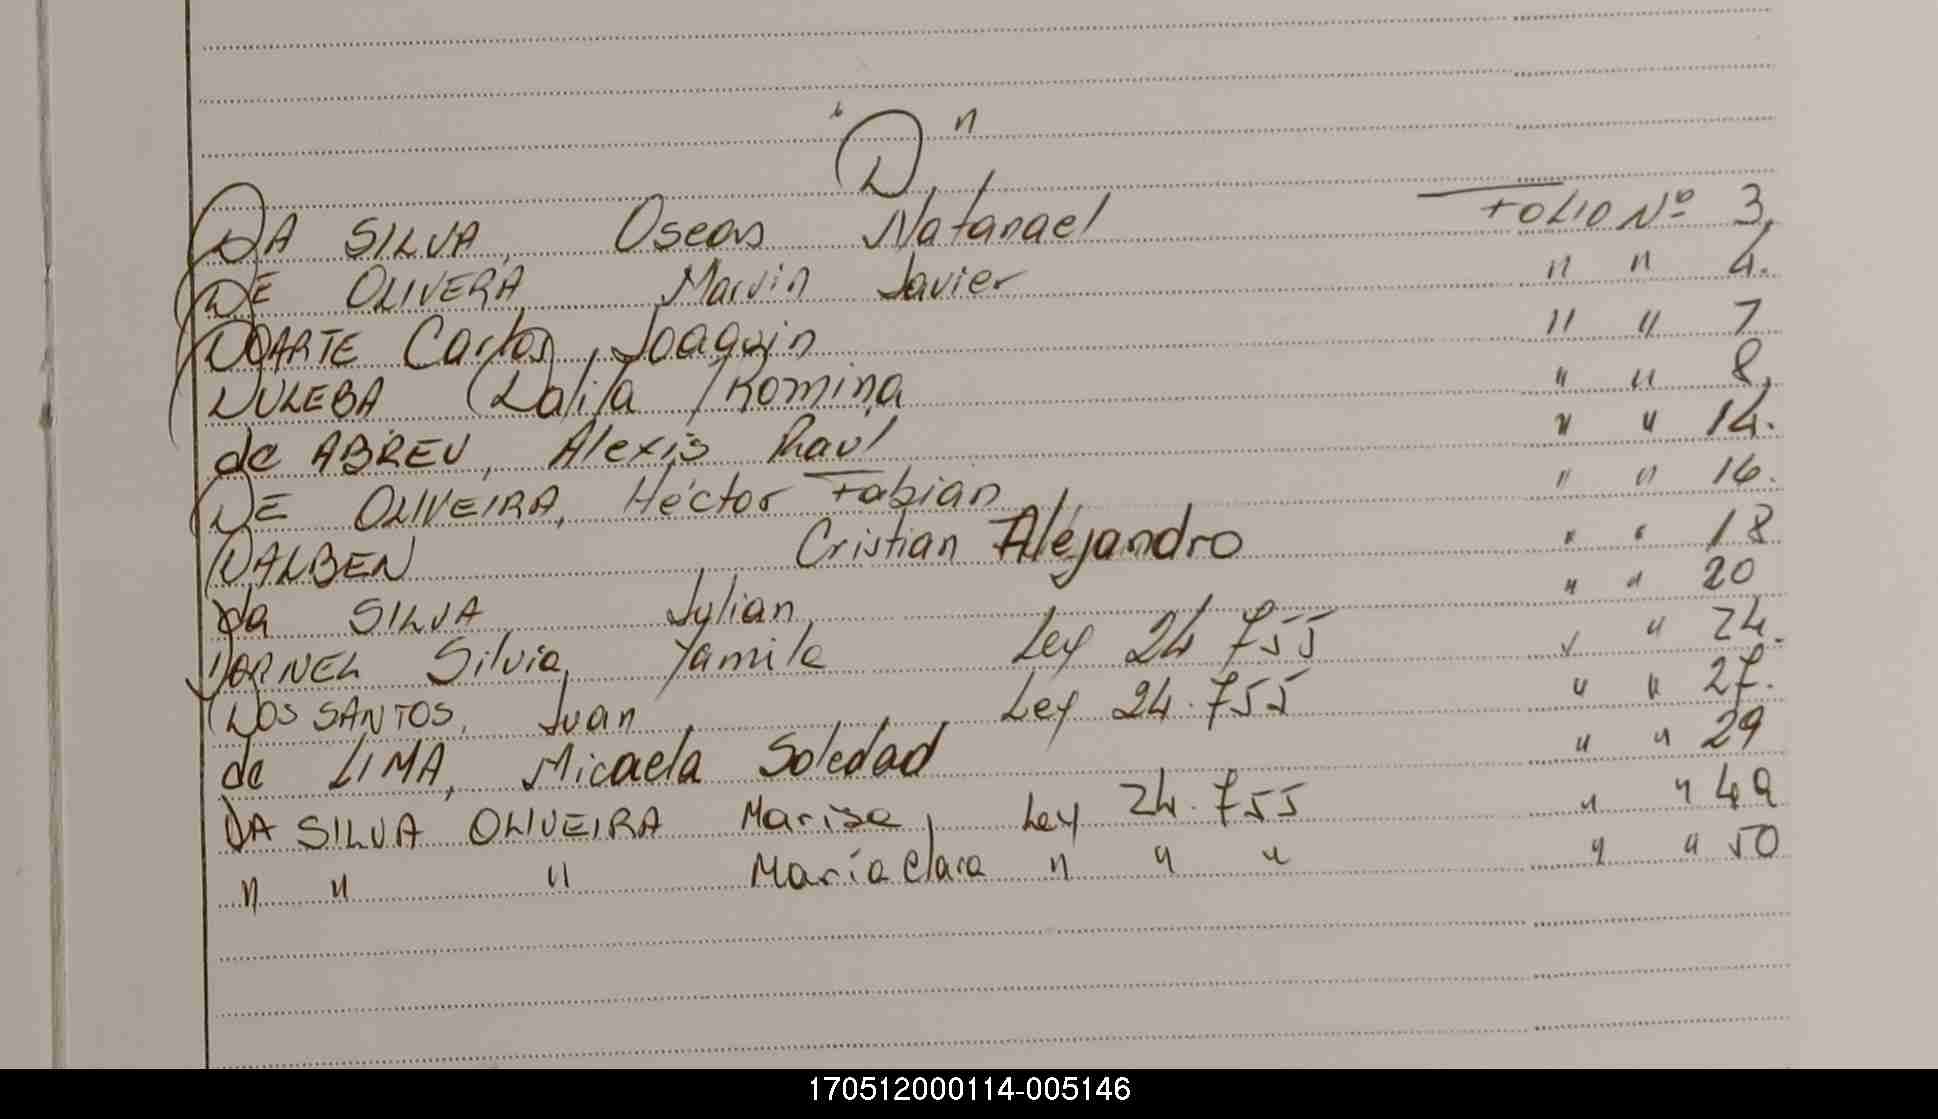 "D"
DA SILVA, Oseas Natanael FOLIO Nº 3.
DE OLIVERA, Marvin Javier " " 4.
DUARTE Carlos, Joaquin " " 7
DULEBA Dalila Romina " " 8.
de ABREU, Alexis Raul " " 14.
DE OLIVEIRA, Héctor Fabian " " 16.
DALBEN Cristian Alejandro " " 18
da SILVA Julian " " 20
DORNEL Silvia Yamila Ley 24755 " " 24.
DOS SANTOS, Juan Ley 24.755 " " 27.
de LIMA, Micaela Soledad " " 29
DA SILVA OLIVEIRA Marisa, Ley 24.755 " " 49
" " " María Clara " " " " " 50
170512000114-005146